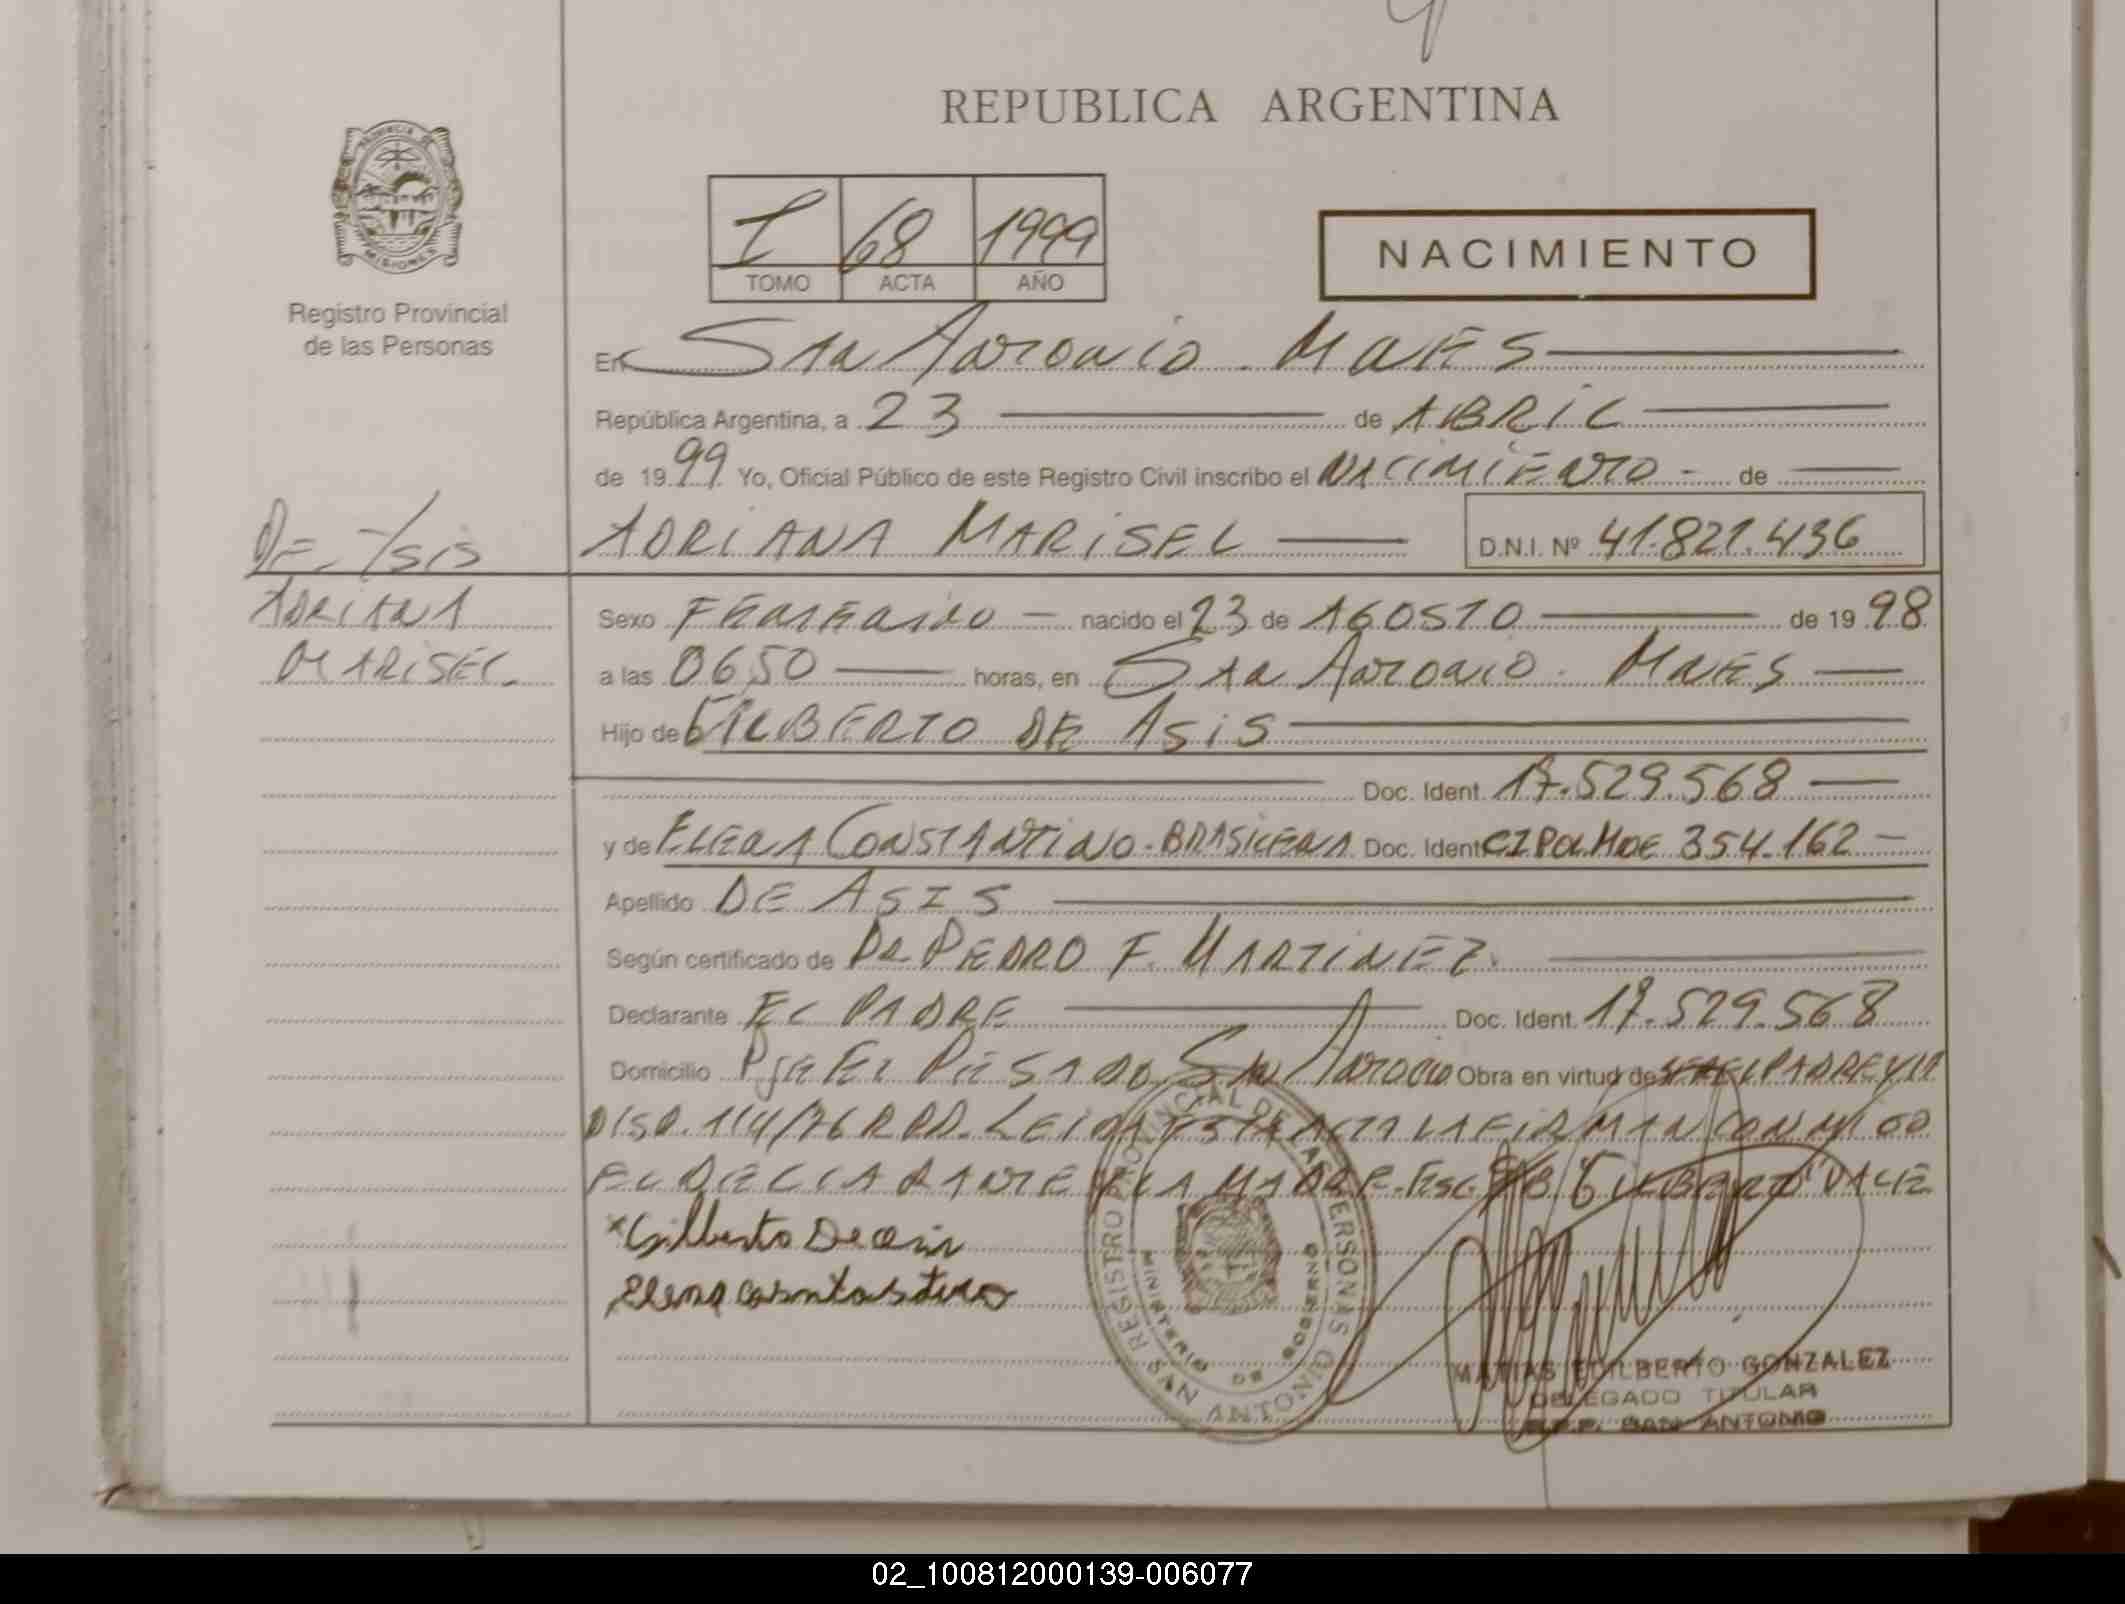 REPUBLICA ARGENTINA
PROVINCIA DE MISIONES
Registro Provincial
de las Personas
I 68 1999
TOMO ACTA AÑO
NACIMIENTO
En San Antonio. Mnes
República Argentina, a 23 de ABRIL
de 1999 Yo, Oficial Público de este Registro Civil inscribo el NACIMIENTO - de
ADRIANA MARISEL D.N.I. Nº 41.821.436
DE ASIS
ADRIANA
MARISEL.
Sexo FEMENINO - nacido el 23 de AGOSTO de 1998
a las 0650 horas, en San Antonio. Mnes
Hijo de GILBERTO DE ASIS
Doc. Ident. 17.529.568
y de ELENA CONSTANTINO - BRASILERA Doc. Ident CI POL Mnes 354.162 -
Apellido DE ASIS
Según certificado de DR PEDRO F. MARTINEZ.
Declarante EL PADRE Doc. Ident. 17.529.568
Domicilio Pje EL PESADO San Antonio Obra en virtud de SER EL PADRE Y LA
DISP. 114/76 RPP. LEIDA ESTA ACTA LA FIRMAN CONMIGO
EL DECLARANTE Y LA MADRE. GILBERTO VALE
x Gilberto De asis
Elena
REGISTRO PROVINCIAL DE LAS PERSONAS
MINISTERIO DE GOBIERNO
SAN ANTONIO
MATIAS EDILBERTO GONZALEZ
DELEGADO TITULAR
R.P.P. SAN ANTONIO
02_100812000139-006077